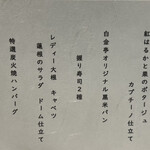 紅はるかと栗のポタージュ
カプチーノ仕立て
白金亭オリジナル黒米パン
握り寿司2種
レディー大根 キャベツ
蓮根のサラダ ドーム仕立て
特選炭火焼ハンバーグ